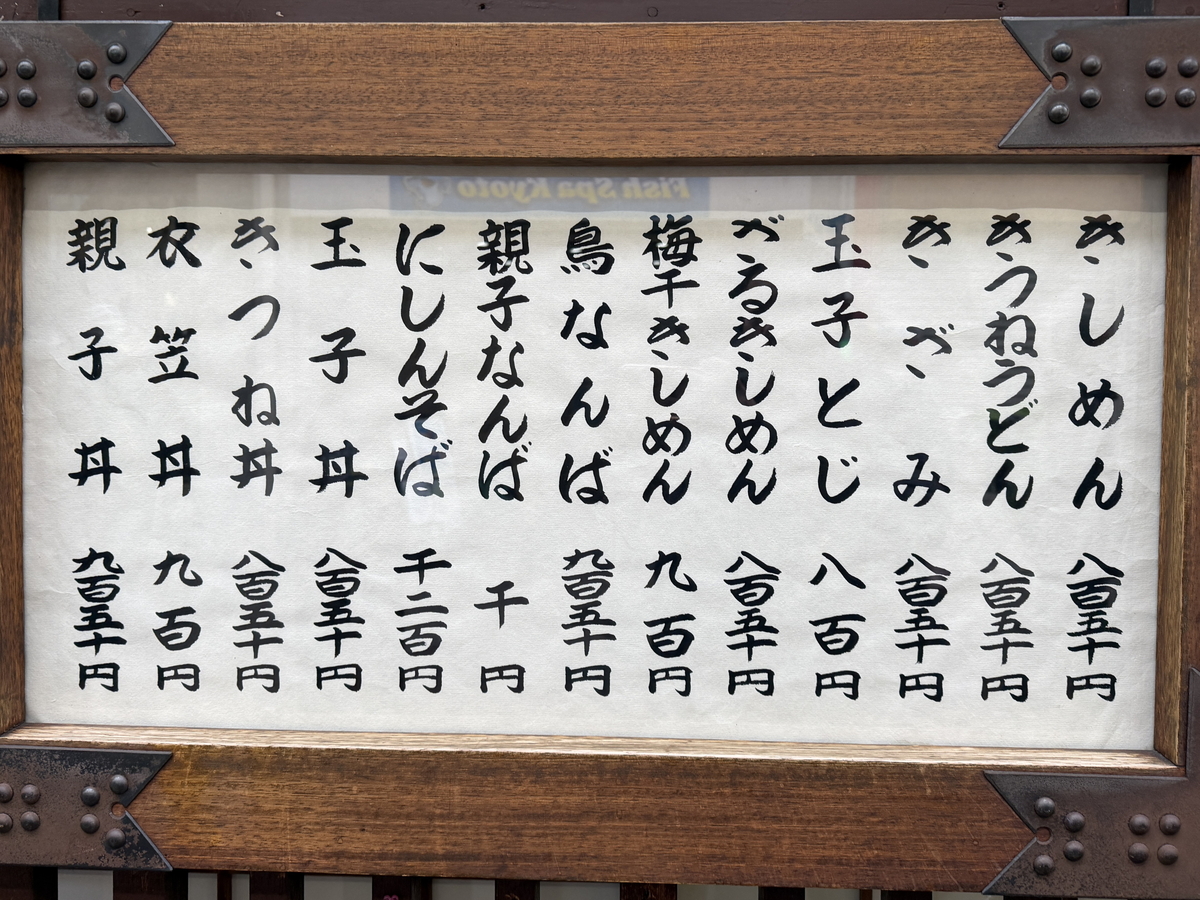 きしめん 八百五十円
きつねうどん 八百五十円
きざみ 八百五十円
玉子とじ 八百円
ざるきしめん 八百五十円
梅干きしめん 九百円
鳥なんば 九百五十円
親子なんば 千円
にしんそば 千二百円
玉子丼 八百五十円
きつね丼 八百五十円
衣笠丼 九百円
親子丼 九百五十円
Fish Spa Kyoto